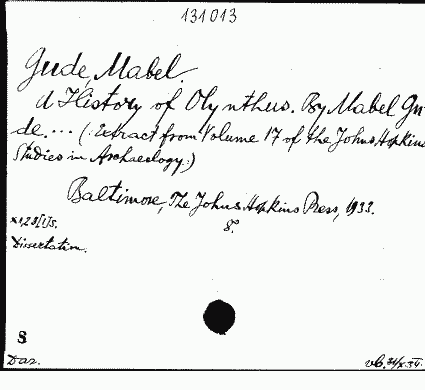 131013
Gude, Mabel.
A History of Olynthus. By Mabel Gu-
de. ... (Extract from Volume 17 of the Johns Hopkins
Studies in Archaeology.)
Baltimore, The Johns Hopkins Press, 1933.
8°.
x,28[1]s.
Dissertation.
8
Dar.